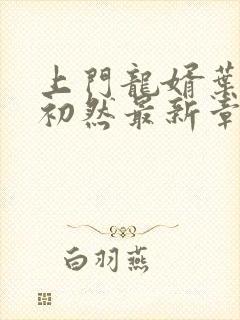 上門龍婿葉
初然最新章
白羽燕